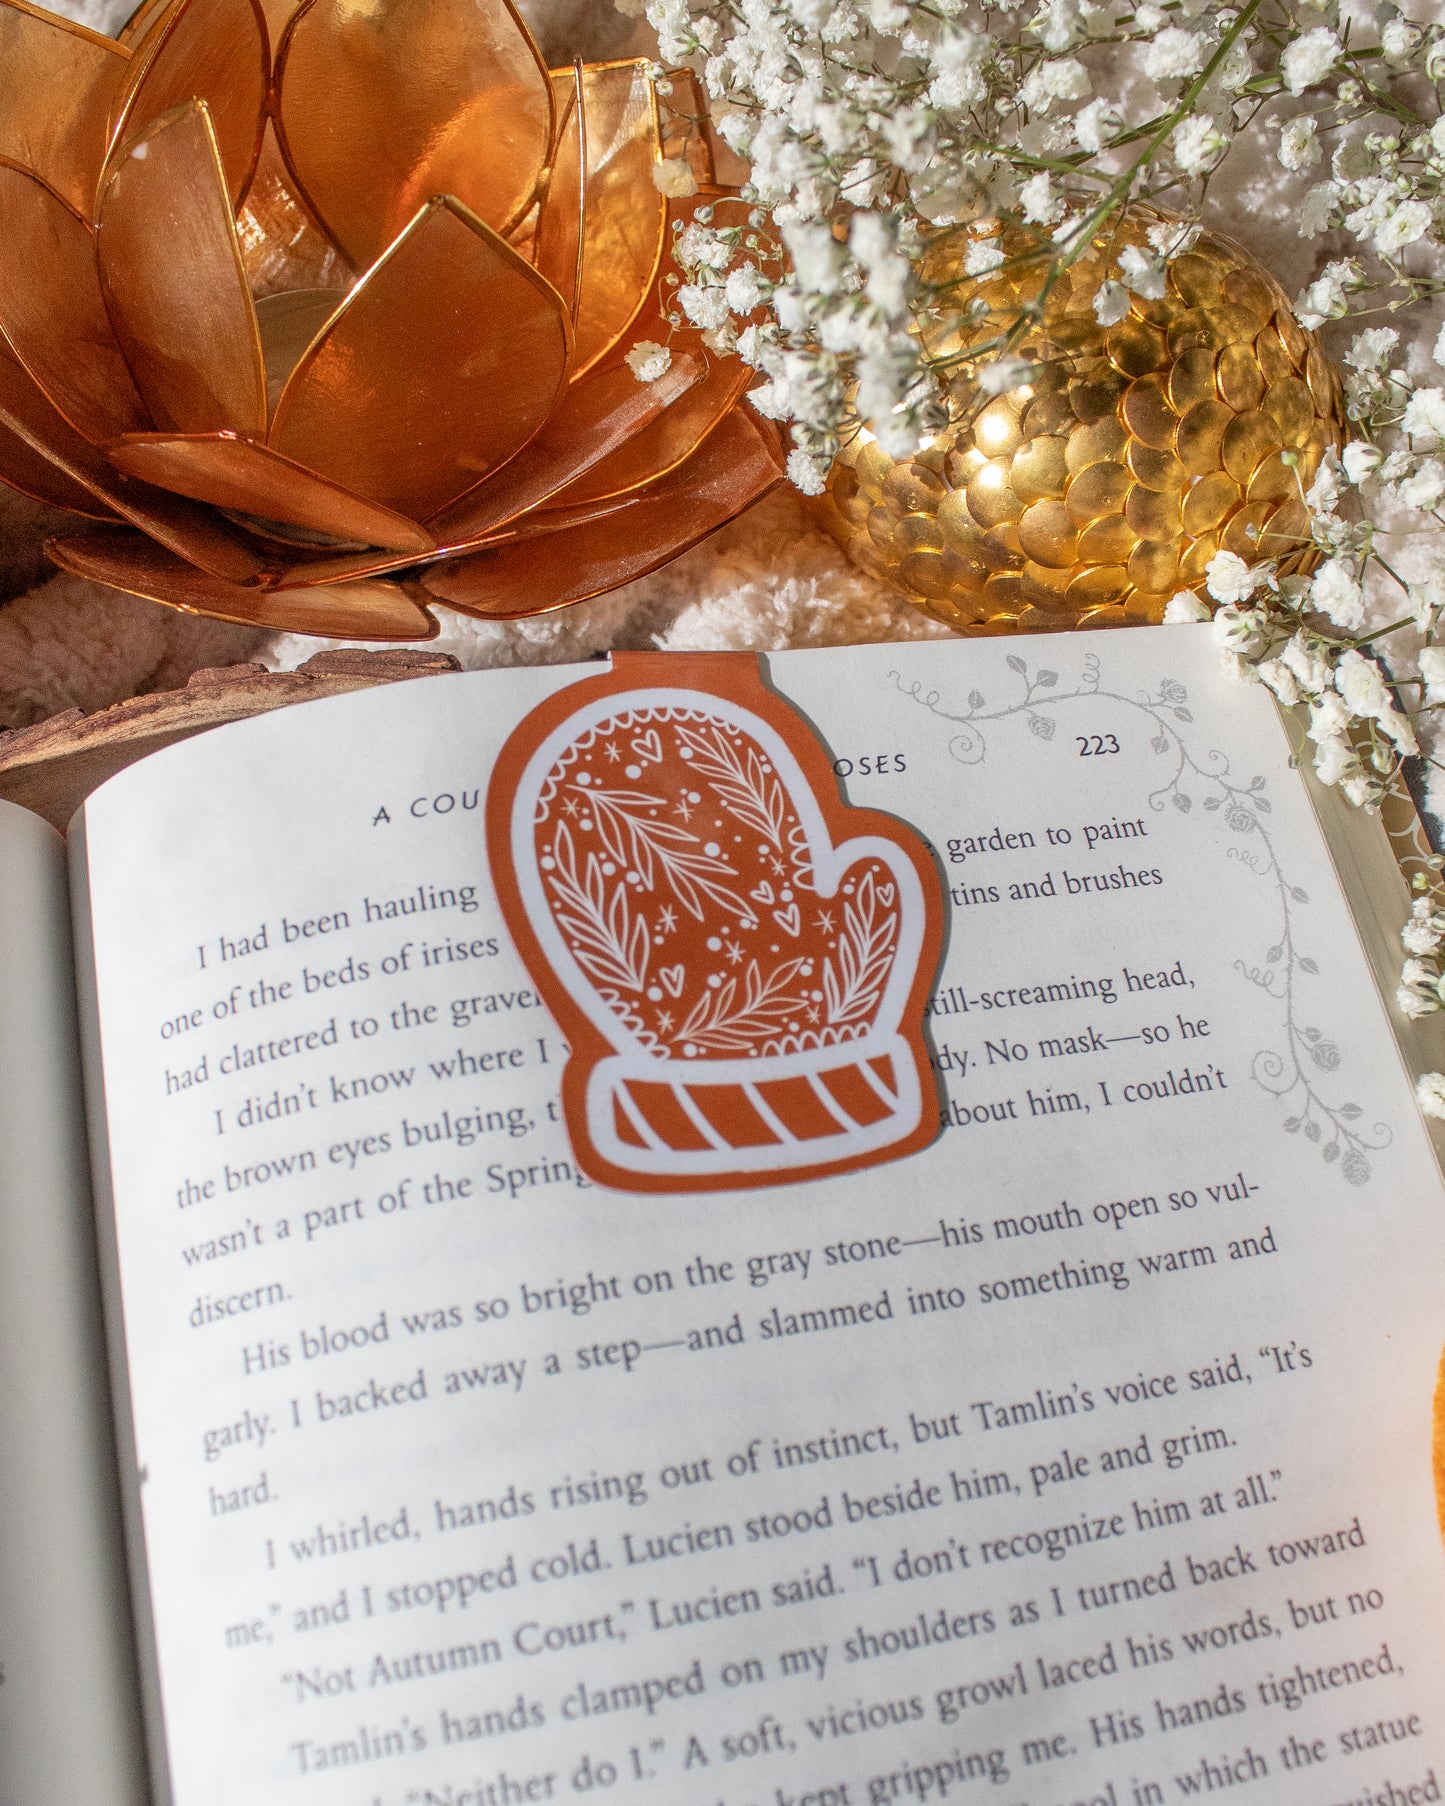 A COU OSES 223
I had been hauling garden to paint
one of the beds of irises tins and brushes
had clattered to the gravel
I didn't know where I still-screaming head,
the brown eyes bulging, No mask—so he
wasn't a part of the Spring about him, I couldn't
discern.
His blood was so bright on the gray stone—his mouth open so vul-
garly. I backed away a step—and slammed into something warm and
hard.
I whirled, hands rising out of instinct, but Tamlin's voice said, “It's
me,” and I stopped cold. Lucien stood beside him, pale and grim.
“Not Autumn Court,” Lucien said. “I don't recognize him at all.”
Tamlin's hands clamped on my shoulders as I turned back toward
“Neither do I.” A soft, vicious growl laced his words, but no
kept gripping me. His hands tightened,
in which the statue